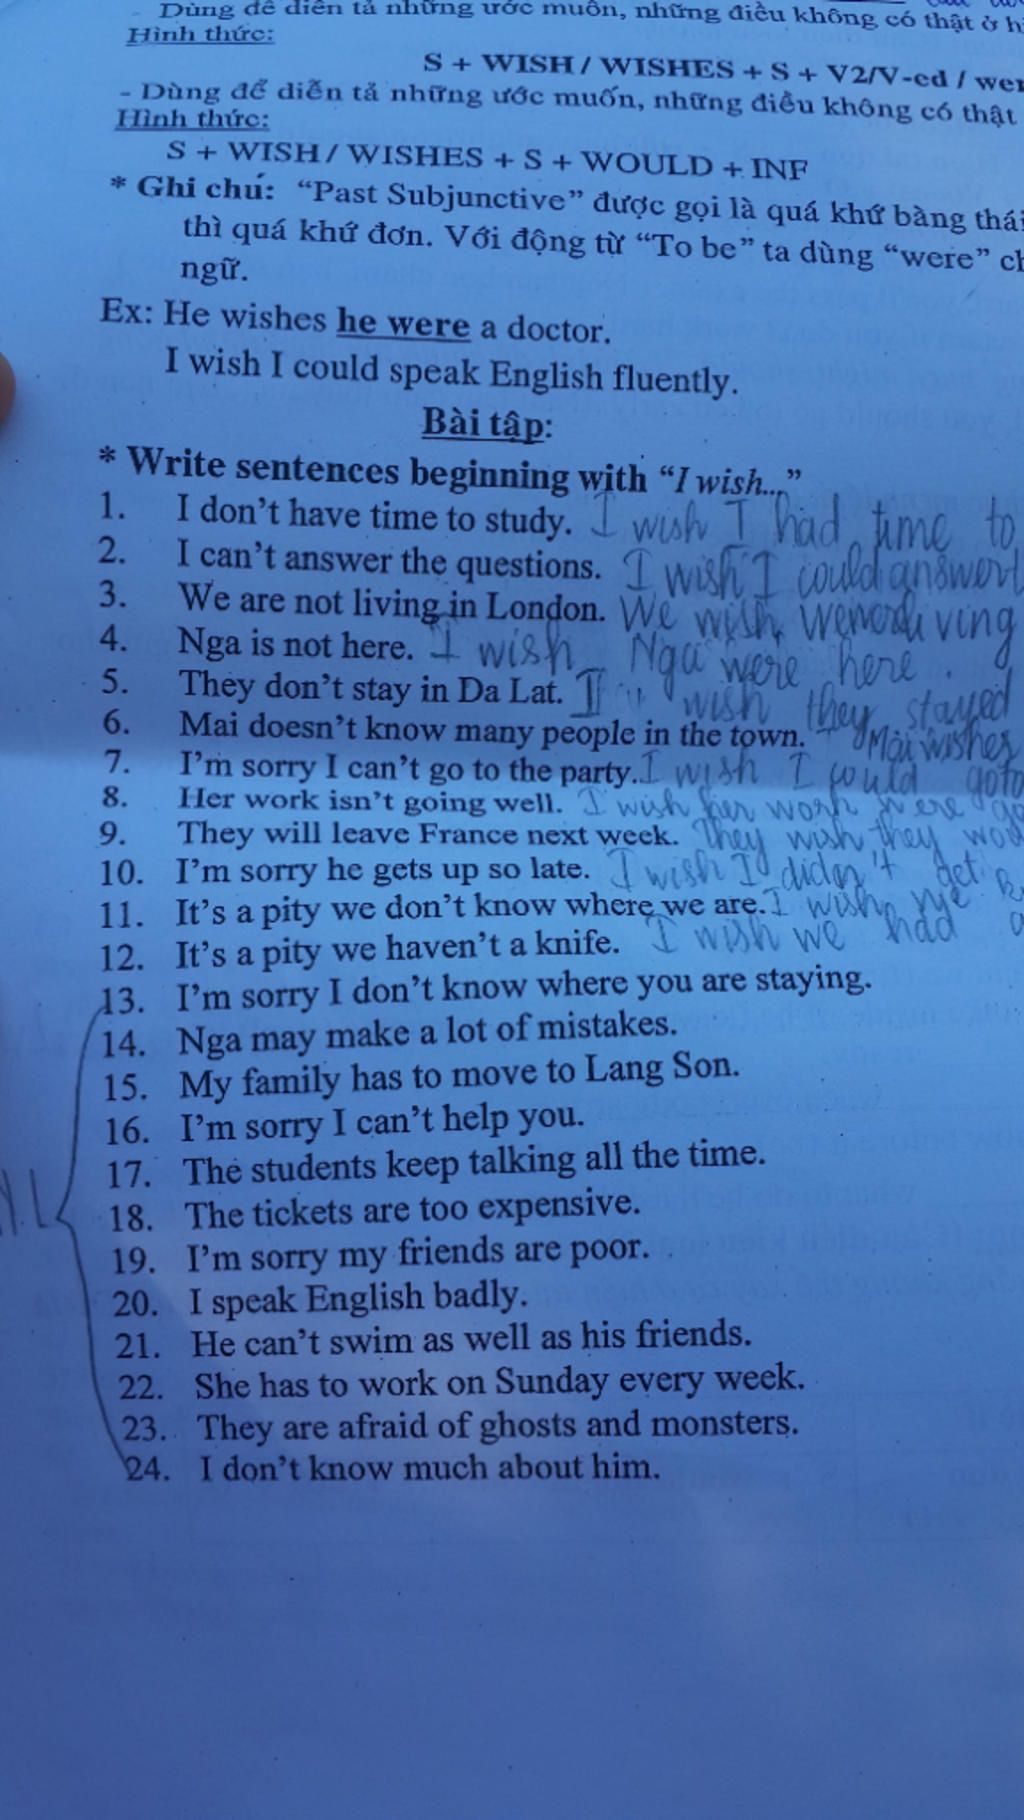 Dùng để diễn tả những ước muốn, những điều không có thật ở
Hình thức:
S + WISH / WISHES + S + V2/V-ed /
- Dùng để diễn tả những ước muốn, những điều không có thật
Hình thức:
S + WISH / WISHES + S + WOULD + INF
* Ghi chú: “Past Subjunctive” được gọi là quá khứ bàng
thì quá khứ đơn. Với động từ “To be” ta dùng “were”
ngữ.
Ex: He wishes he were a doctor.
I wish I could speak English fluently.
Bài tập:
* Write sentences beginning with “I wish...”
1. I don’t have time to study. I wish I had time to
2. I can’t answer the questions. I wish I could answer
3. We are not living in London. We wish living
4. Nga is not here. I wish Nga were here.
5. They don’t stay in Da Lat. I wish they stayed
6. Mai doesn’t know many people in the town. Mai wishes
7. I’m sorry I can’t go to the party. I wish I could go to
8. Her work isn’t going well. I wish her work were
9. They will leave France next week. They wish they
10. I’m sorry he gets up so late. I wish I didn't get
11. It’s a pity we don’t know where we are. I wish we
12. It’s a pity we haven’t a knife. I wish we had a
13. I’m sorry I don’t know where you are staying.
14. Nga may make a lot of mistakes.
15. My family has to move to Lang Son.
16. I’m sorry I can’t help you.
17. The students keep talking all the time.
18. The tickets are too expensive.
19. I’m sorry my friends are poor.
20. I speak English badly.
21. He can’t swim as well as his friends.
22. She has to work on Sunday every week.
23. They are afraid of ghosts and monsters.
24. I don’t know much about him.